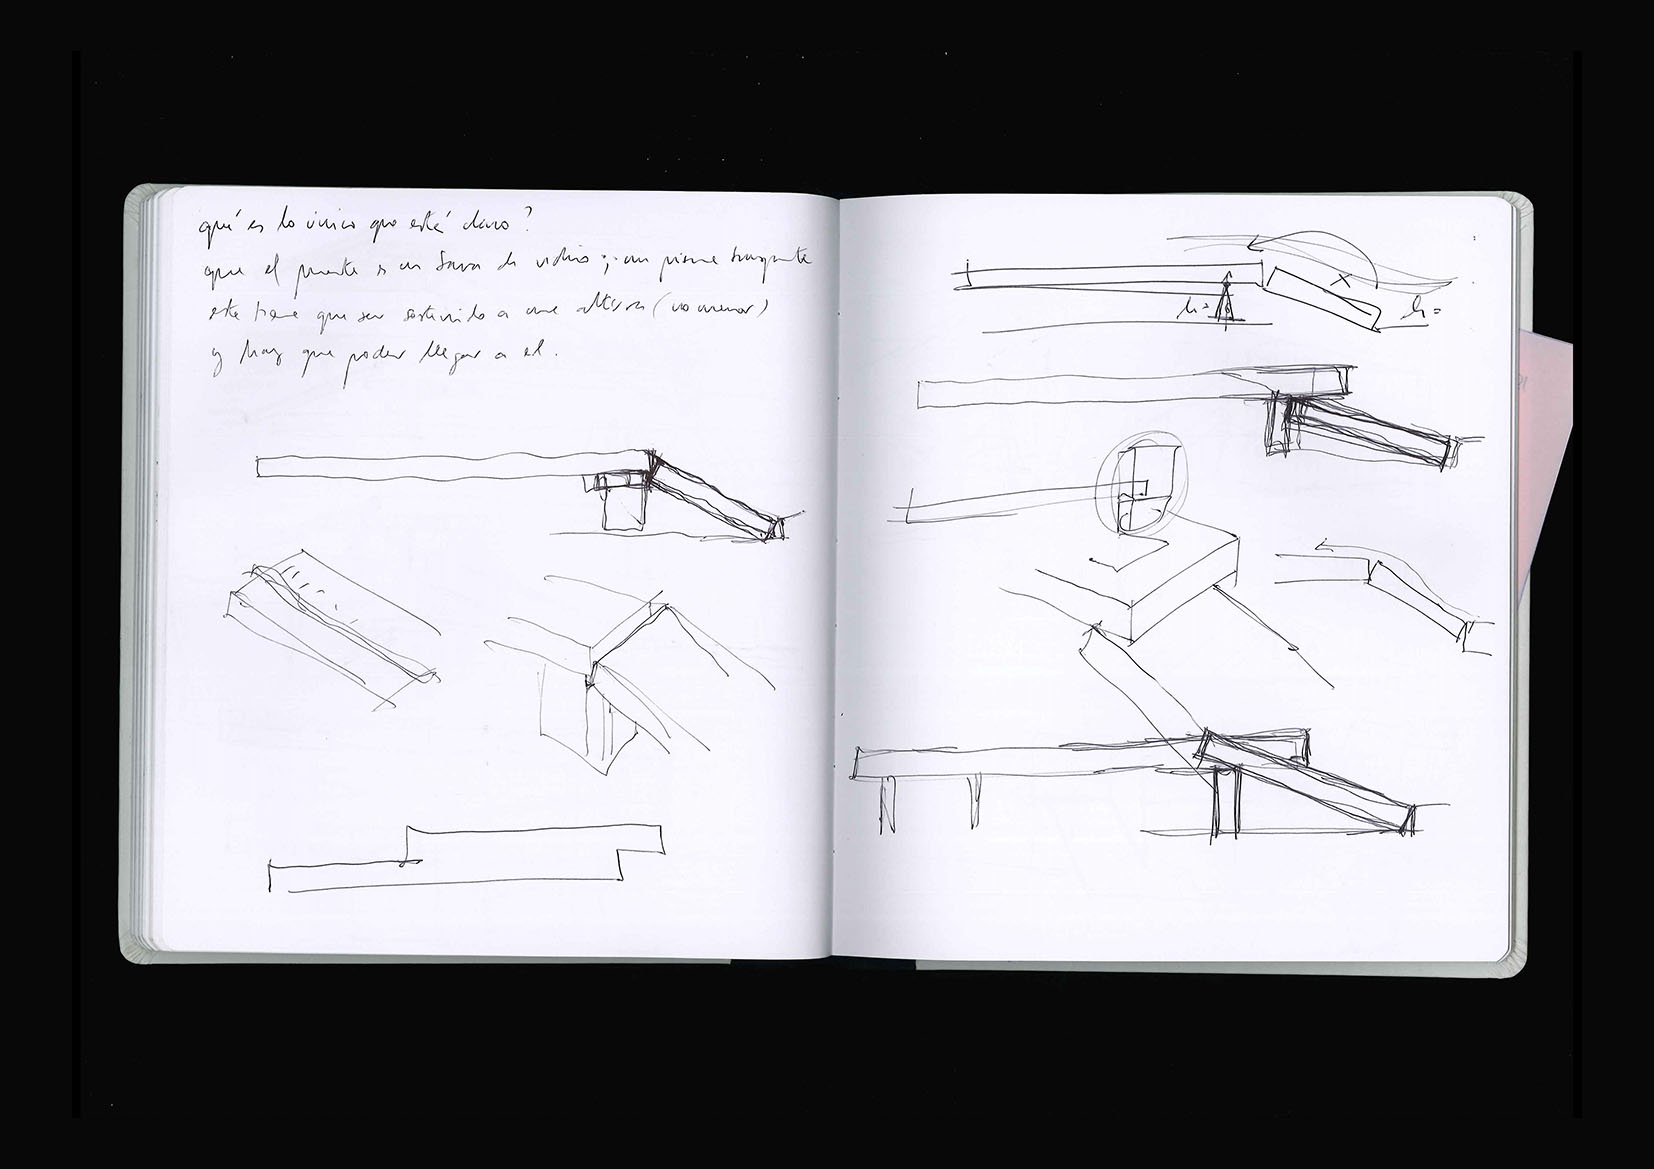 qué es lo único que está claro?
que el puente es un de vidrio; un prisma
este tiene que ser sostenido a una altura (no menor)
y hay que poder llegar a el.
h=
h=